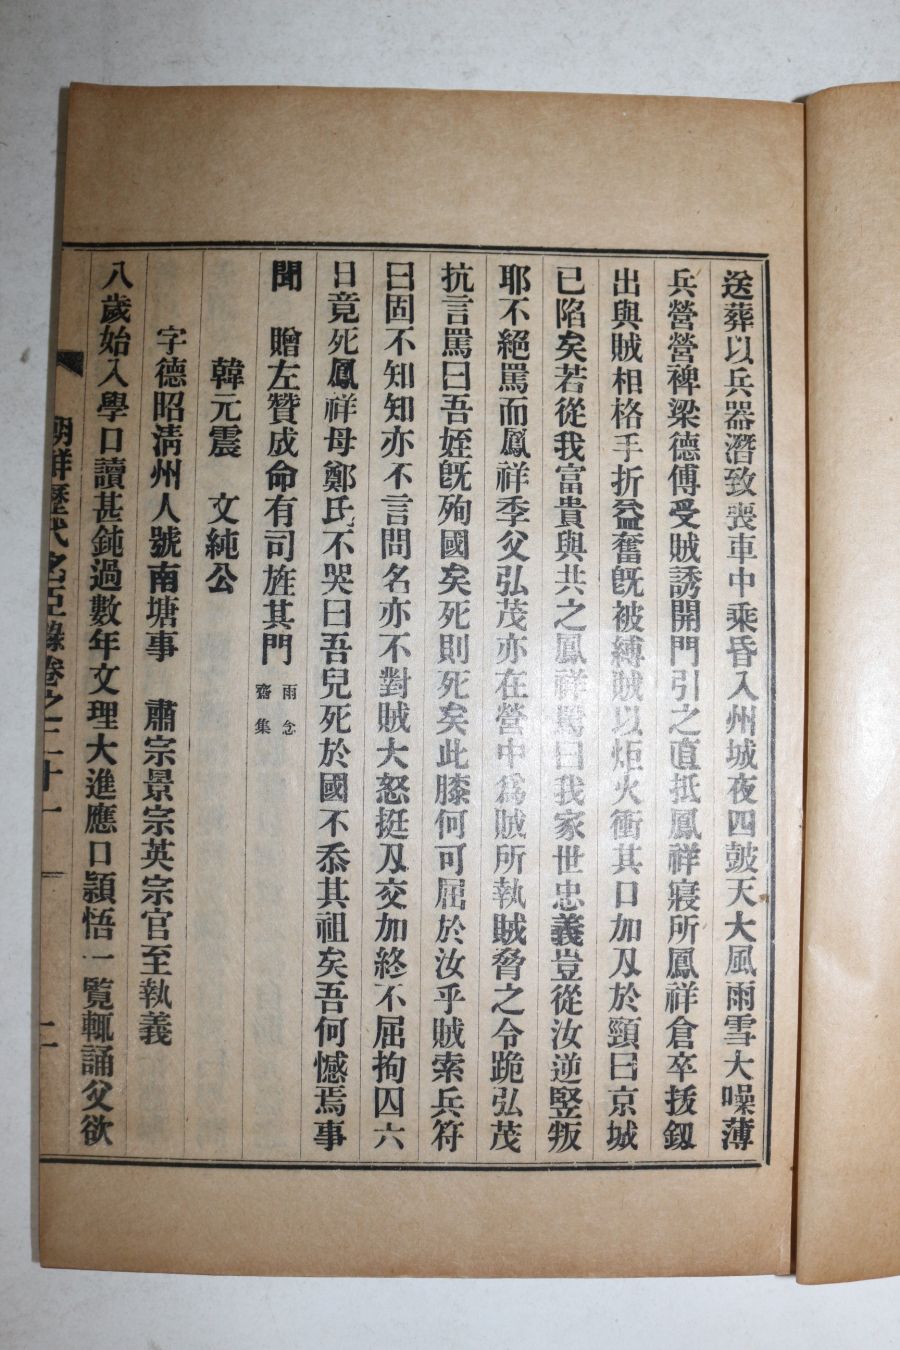 送葬以兵器潛致喪車中乘昏入州城夜四鼓天大風雨雪大噪薄
兵營營裨梁德傅受賊誘開門引之直抵鳳祥寢所鳳祥倉卒拔釼
出與賊相格手折益奮旣被縛賊以炬火衝其口加刃於頸曰京城
已陷矣若從我富貴與共之鳳祥罵曰我家世忠義豈從汝逆竪叛
耶不絕罵而鳳祥季父弘茂亦在營中爲賊所執賊脅之令跪弘茂
抗言罵曰吾姪旣殉國矣死則死矣此膝何可屈於汝乎賊索兵符
曰固不知知亦不言問名亦不對賊大怒挺刃交加終不屈拘囚六
日竟死鳳祥母鄭氏不哭曰吾兒死於國不忝其祖矣吾何憾焉事
聞　贈左贊成命有司旌其門 雨念齋集
韓元震　文純公
字德昭淸州人號南塘事　肅宗景宗英宗官至執義
八歲始入學口讀甚鈍過數年文理大進應口頴悟一覽輒誦父欲
朝鮮歷代名臣錄卷之二十一　二